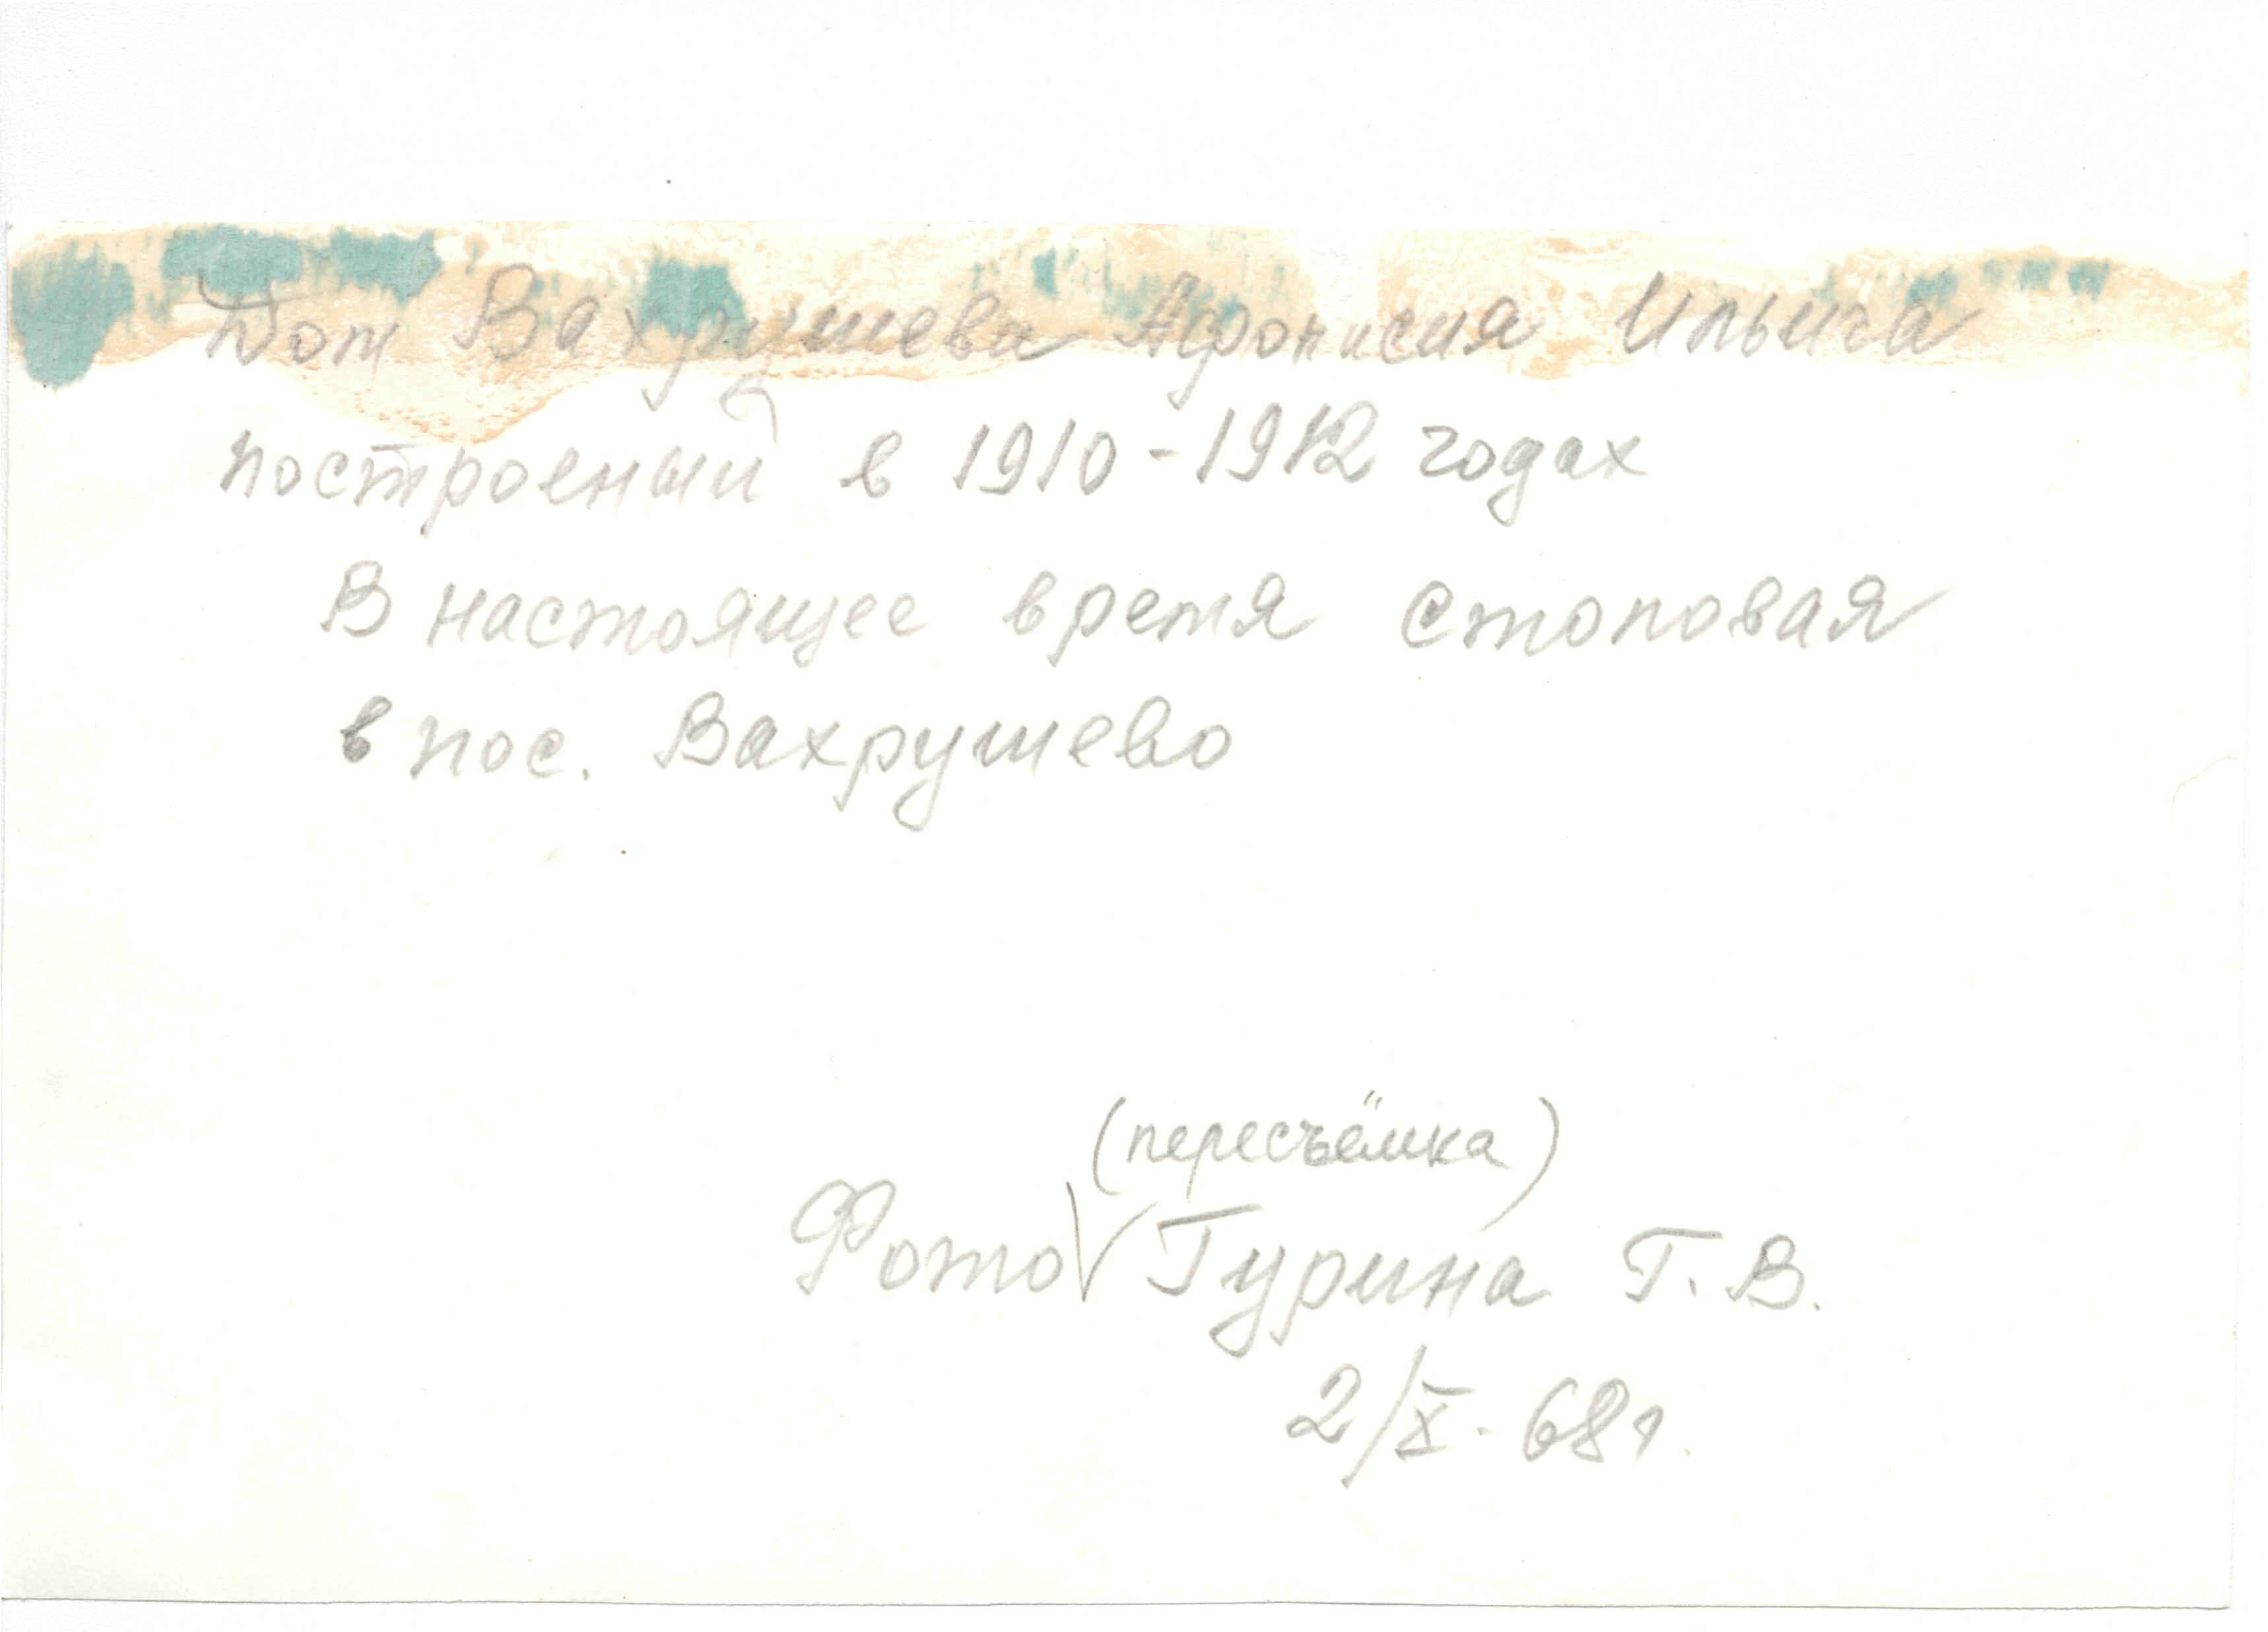 Дом Вахрушева Афонисия Ильича
построеный в 1910-1912 годах
В настоящее время столовая
в пос. Вахрушево
(пересъёмка)
Фото Гурина Г. В.
2/X. 68г.